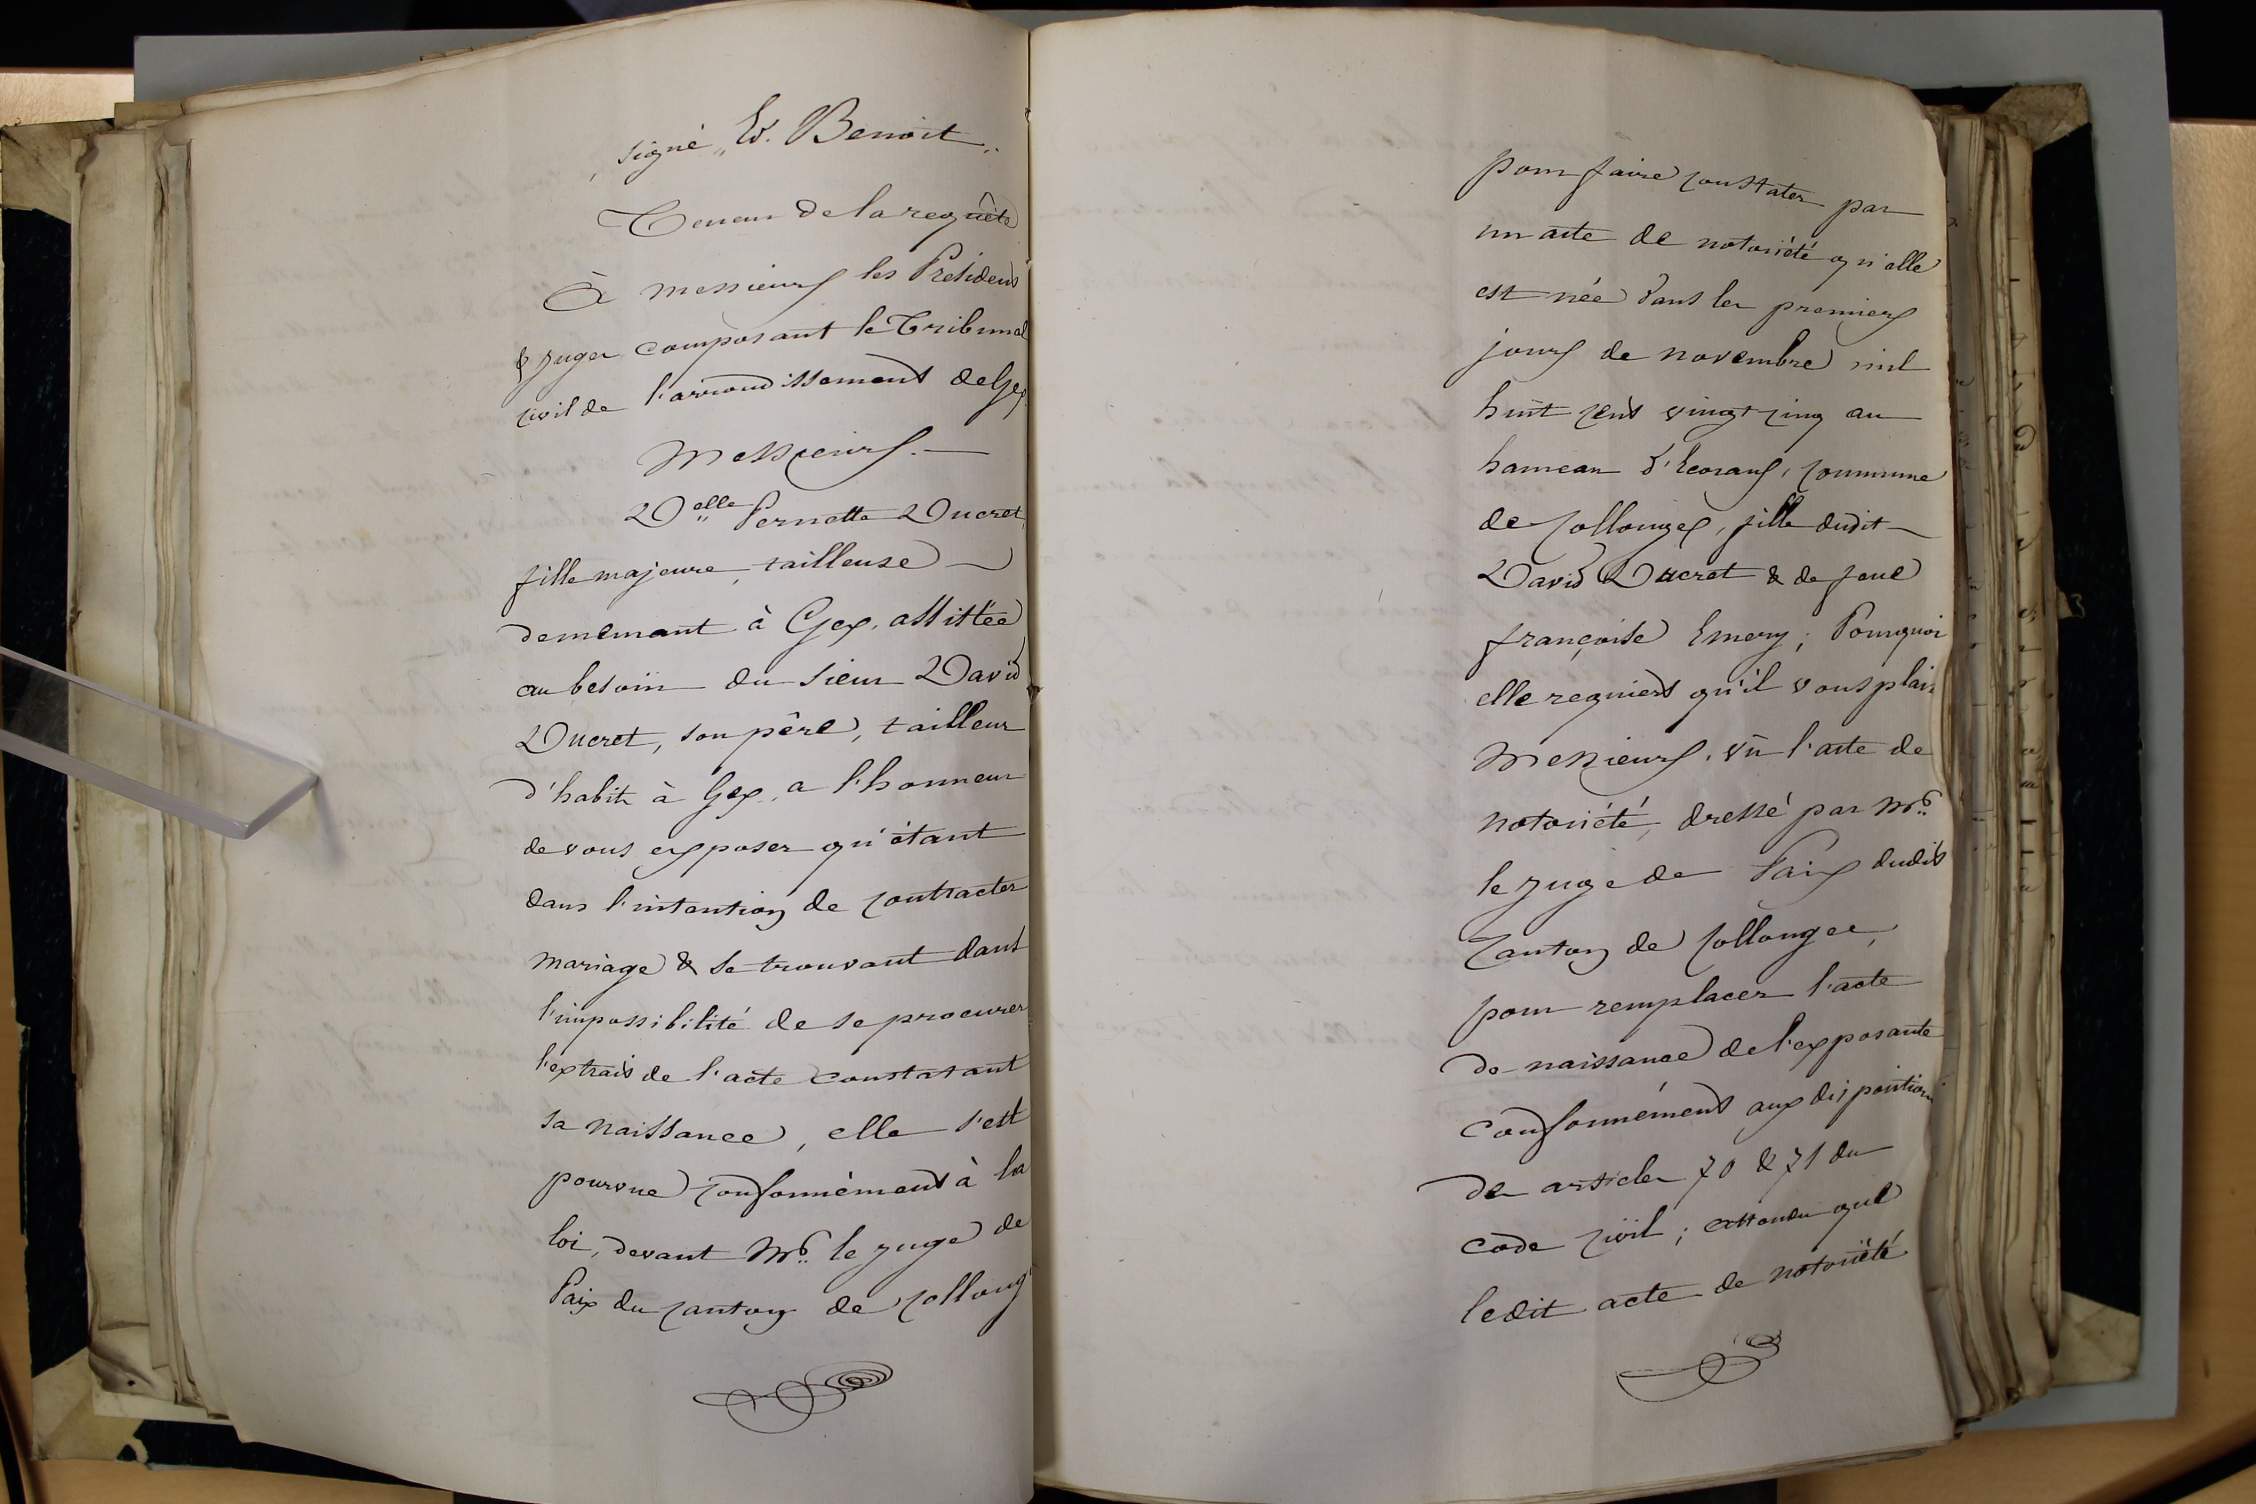 signé, Ed. Benoit.
Teneur de la requête
À messieurs les Présidens
& Juges composant le Tribunal
civil de l'arrondissement de Gex
Messieurs.
Delle Pernette Ducret,
fille majeure, tailleuse
demeurant à Gex, assistée
au besoin du sieur David
Ducret, son père, tailleur
d'habits à Gex, a l'honneur
de vous exposer qu'étant
dans l'intention de contracter
mariage & se trouvant dans
l'impossibilité de se procurer
l'extrait de l'acte constatant
sa naissance, elle s'est
pourvue conformément à la
loi, devant Mr. le Juge de
Paix du canton de Collong
pour faire constater par
un acte de notoriété qu'elle
est née dans les premiers
jours de novembre mil
huit cent vingt cinq au
hameau d'Ecorans, commune
de Collonges, fille dudit
David Ducret & de feue
françoise Emery; Pourquoi
elle requiert qu'il vous plais
Messieurs. vû l'acte de
notoriété, dressé par Mr.
le Juge de Paix dudit
Canton de Collonges,
pour remplacer l'acte
de naissance de l'exposante
conformément aux dispositions
des articles 70 & 71 du
code civil; attendu que
ledit acte de notoriété